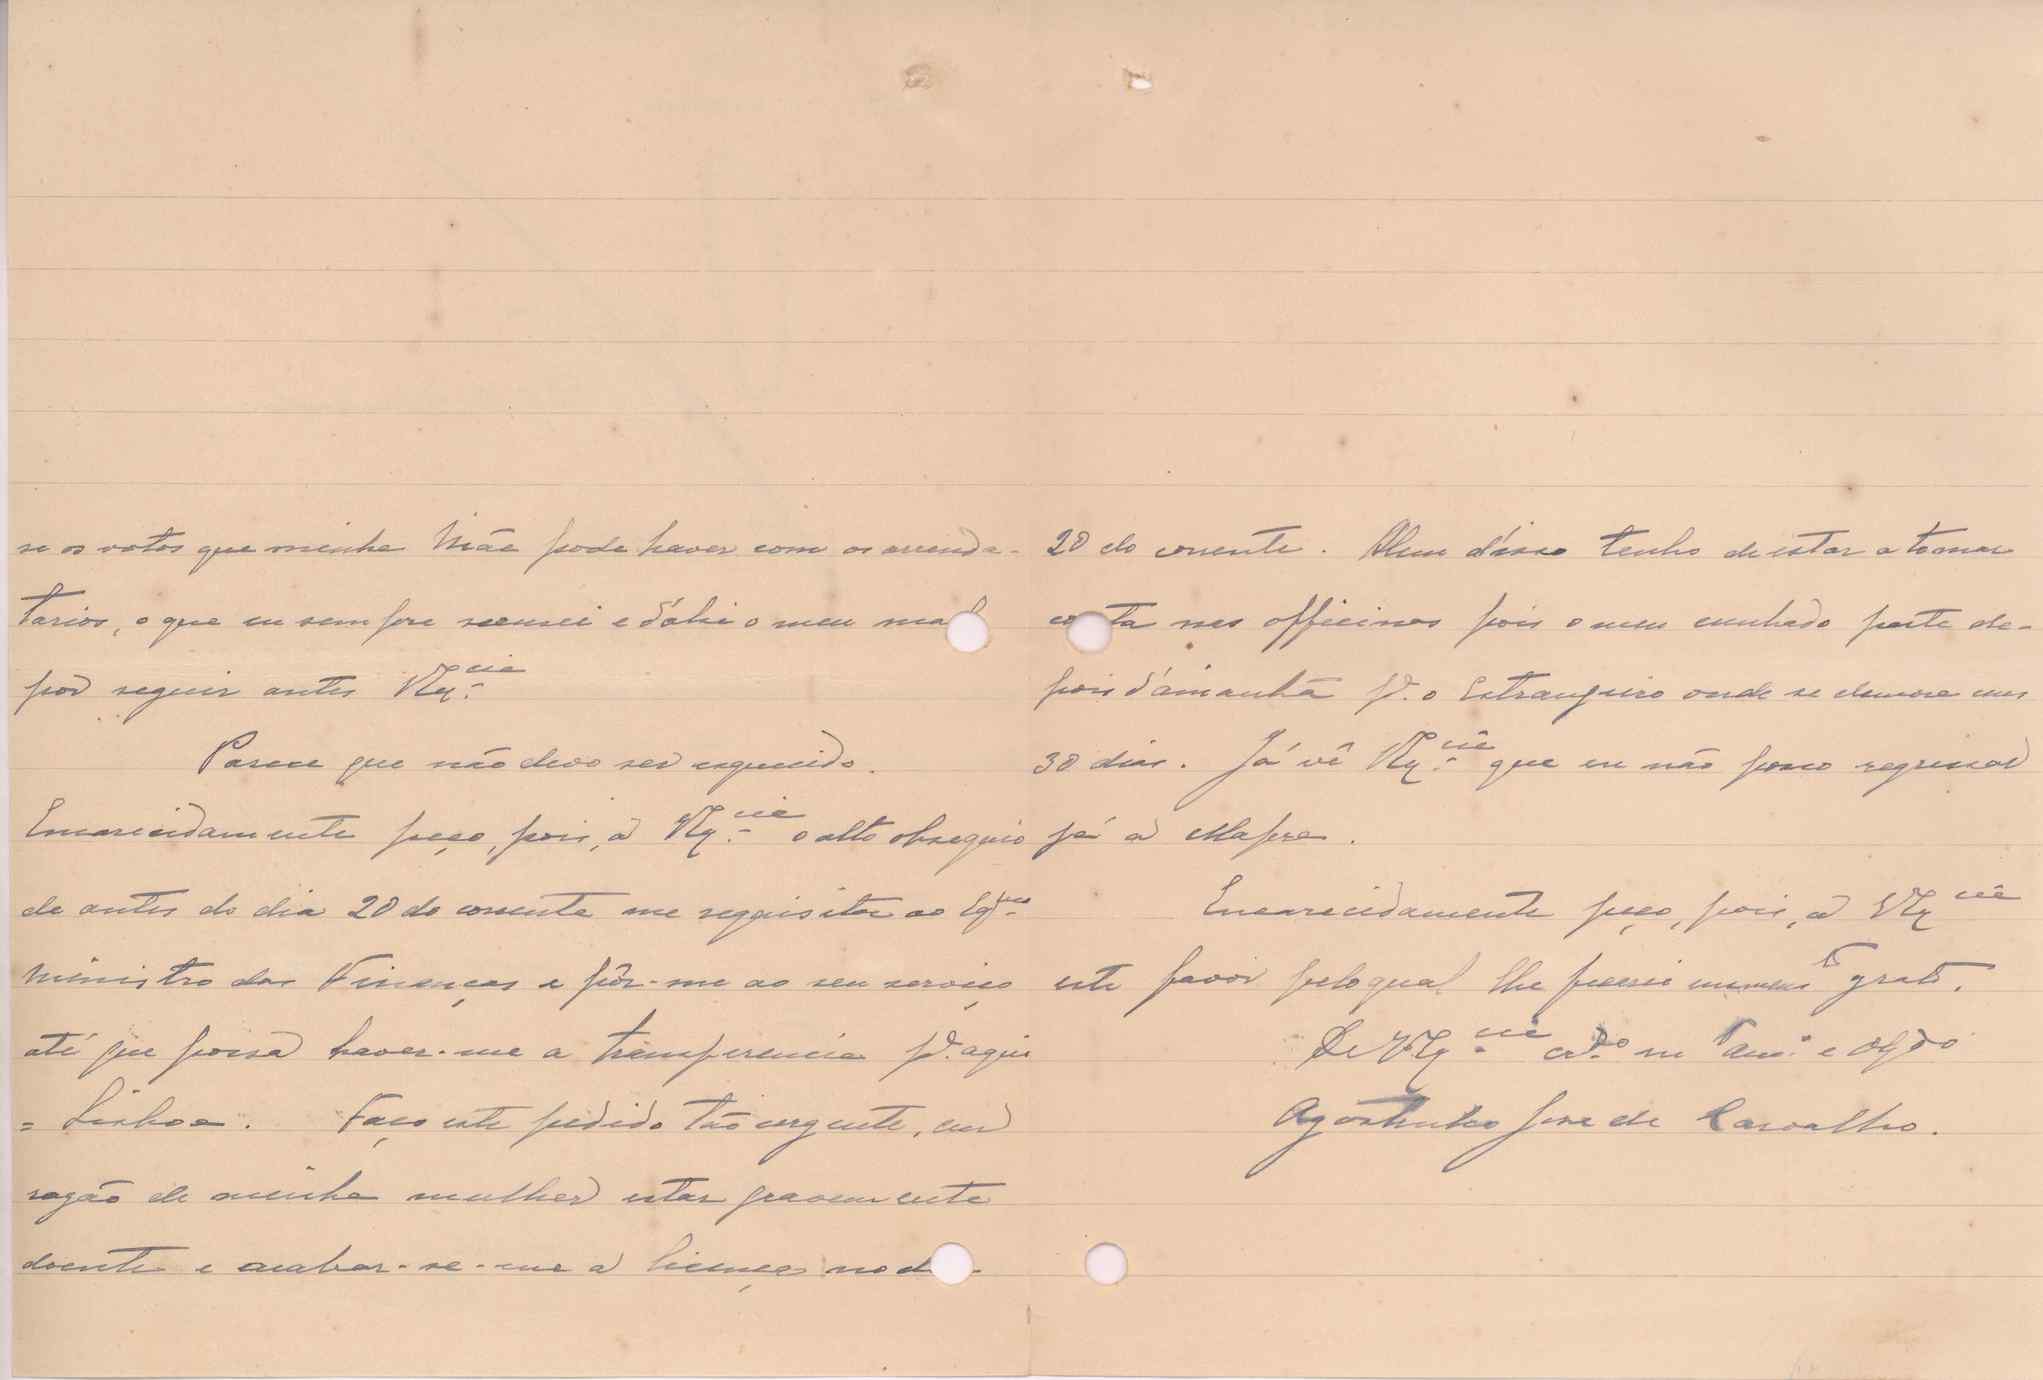 se os votos que minha Mãe pode haver com os arrenda-
tarios, o que eu sempre recusei e d'ahi o meu mal
por seguir antes V Ex.cia
Parece que não devo ser esquecido.
Encarecidamente peço, pois, a V Ex.cia o alto obsequio
de antes do dia 20 do corrente me requisitar ao Exmo
ministro das Finanças e pôr-me ao seu serviço
até que possa haver-me a transferencia p.a aqui
= Lisboa. Faço este pedido tão urgente, em
razão de minha mulher estar gravemente
doente e acabar-se-me a licença no d
20 do corrente. Alem disso tenho de estar a tomar
conta nas officinas pois o meu cunhado parte de-
pois d'ámanhã p.a o Estrangeiro onde se demora uns
30 dias. Já vê V Ex.cia que eu não posso regressar
já a Mafra.
Encarecidamente peço, pois, a V Ex cia
este favor pelo qual lhe ficarei immenso grato.
De V Ex.cia cr.do m to am.o e obgdo
Agostinho José de Carvalho.